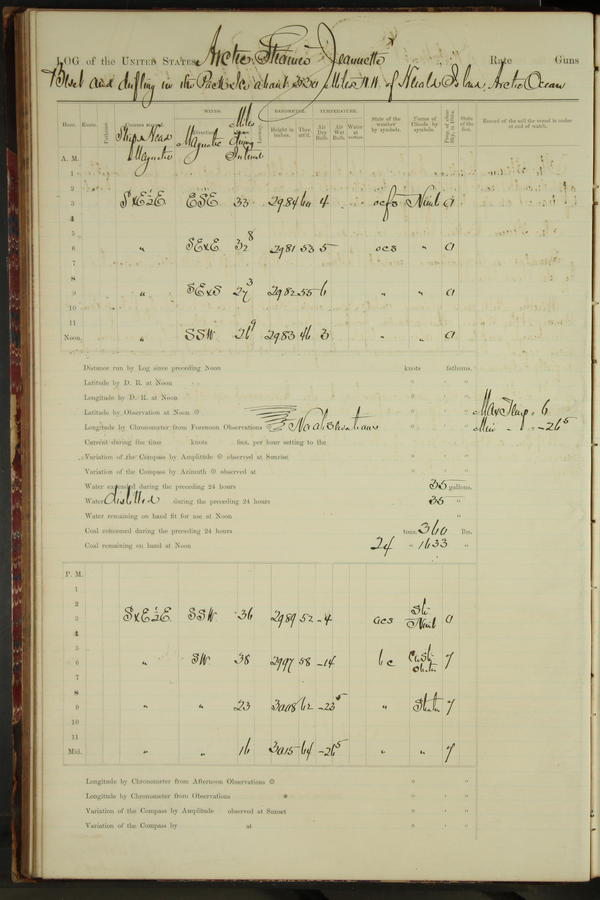 LOG of the United States Arctic Steamer Jeannette Rate Guns
Beset and drifting in the Pack Ice about Miles N.W. of Herald Island, Arctic Ocean
Hour. Knots. Courses steered. WINDS. BAROMETER. TEMPERATURE. State of the weather by symbols. Forms of Clouds by symbols. State of the Sea. Record of the sail the vessel is under at end of watch.
Ships Head Magnetic Direction Magnetic Miles Height in inches. Ther. att'd. Air Dry Bulb. Air Wet Bulb. Water at surface.
A. M.
1
2
3 SxE½E ESE 33 29.84 60 4 ocfs Nimb 0
4
5
6 " SExE 32 8 29.81 53 5 ocs " 0
7
8
9 " SExS 27 3 29.82 55 6 " " 0
10
11
Noon. " SSW 26 9 29.83 46 3 " " 0
Distance run by Log since preceding Noon knots fathoms.
Latitude by D. R. at Noon ° ' "
Longitude by D. R. at Noon ° ' "
Latitude by Observation at Noon ° ' " Max Temp. 6
Longitude by Chronometer from Forenoon Observations No observations ° ' " Min " -26 5
Current during the time knots fms. per hour setting to the
Variation of the Compass by Amplitude observed at Sunrise ° ' "
Variation of the Compass by Azimuth observed at ° ' "
Water expended during the preceding 24 hours 35 gallons.
Water distilled during the preceding 24 hours 35 "
Water remaining on hand fit for use at Noon "
Coal consumed during the preceding 24 hours tons. 360 lbs.
Coal remaining on hand at Noon 24 " 1633 "
P. M.
1
2
3 SxE½E SSW 36 29.89 52 -4 ocs Str Nimb 0
4
5
6 " SW 38 29.97 58 -14 bc 7
7
8
9 " " 23 30.08 62 -23 5 " Stratus 7
10
11
Mid. " " 16 30.15 64 -26 5 " " 7
Longitude by Chronometer from Afternoon Observations ° ' "
Longitude by Chronometer from Observations ° ' "
Variation of the Compass by Amplitude observed at Sunset ° ' "
Variation of the Compass by at ° ' "